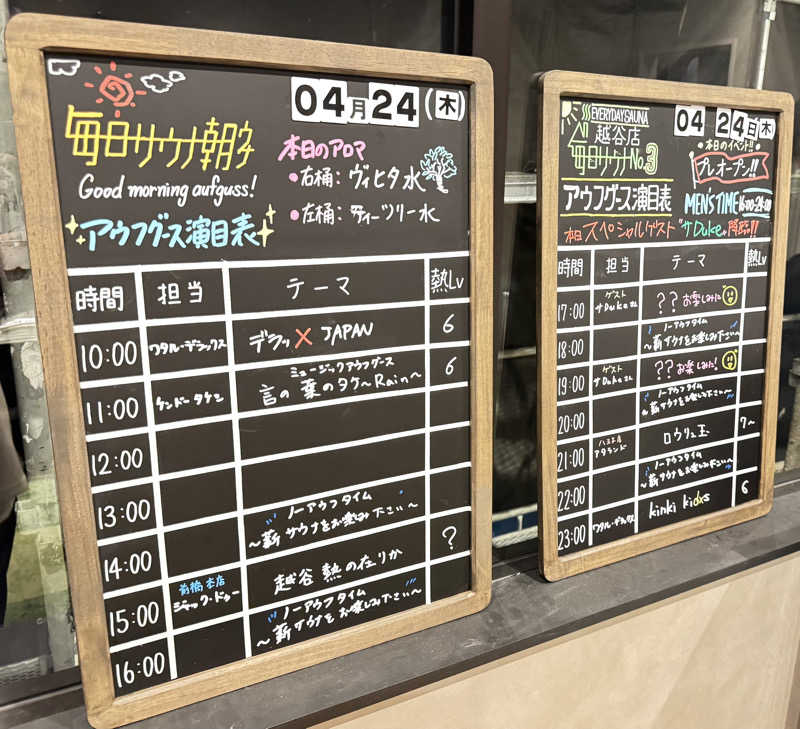 04月24(木)
毎日サウナ朝子
Good morning aufguss!
アウフグース演目表
本日のアロマ
・右桶：ヴィヒタ水
・左桶：ティーツリー水
時間 担当 テーマ 熱Lv
10:00 ワタル・デラックス デラッ×JAPAN 6
11:00 ケンドータケシ ミュージックアウフグース
言の葉のタケ〜Rain〜 6
12:00
13:00 ノーアウフタイム
〜薪サウナをお楽しみ下さい〜
14:00
15:00 前橋本店
ジャック・ドゥー 越谷熱の在りか ?
16:00 ノーアウフタイム
〜薪サウナをお楽しみ下さい〜
EVERYDAY SAUNA
越谷店
毎日サウナNo.3
アウフグース演目表
04 24日木
本日のイベント!!
プレオープン!!
MEN'S TIME 16:00-24:00
本日スペシャルゲスト"サDuke"降臨!!
時間 担当 テーマ 熱Lv
17:00 ゲスト
サDukeさん ??お楽しみに
18:00 ノーアウフタイム
〜薪サウナをお楽しみ下さい〜
19:00 ゲスト
サDukeさん ??お楽しみに!
20:00 ノーアウフタイム
〜薪サウナをお楽しみ下さい〜
21:00 ロウリュ玉 7〜
22:00 ノーアウフタイム
〜薪サウナをお楽しみ下さい〜
23:00 ワタル・デラックス kinki kids 6